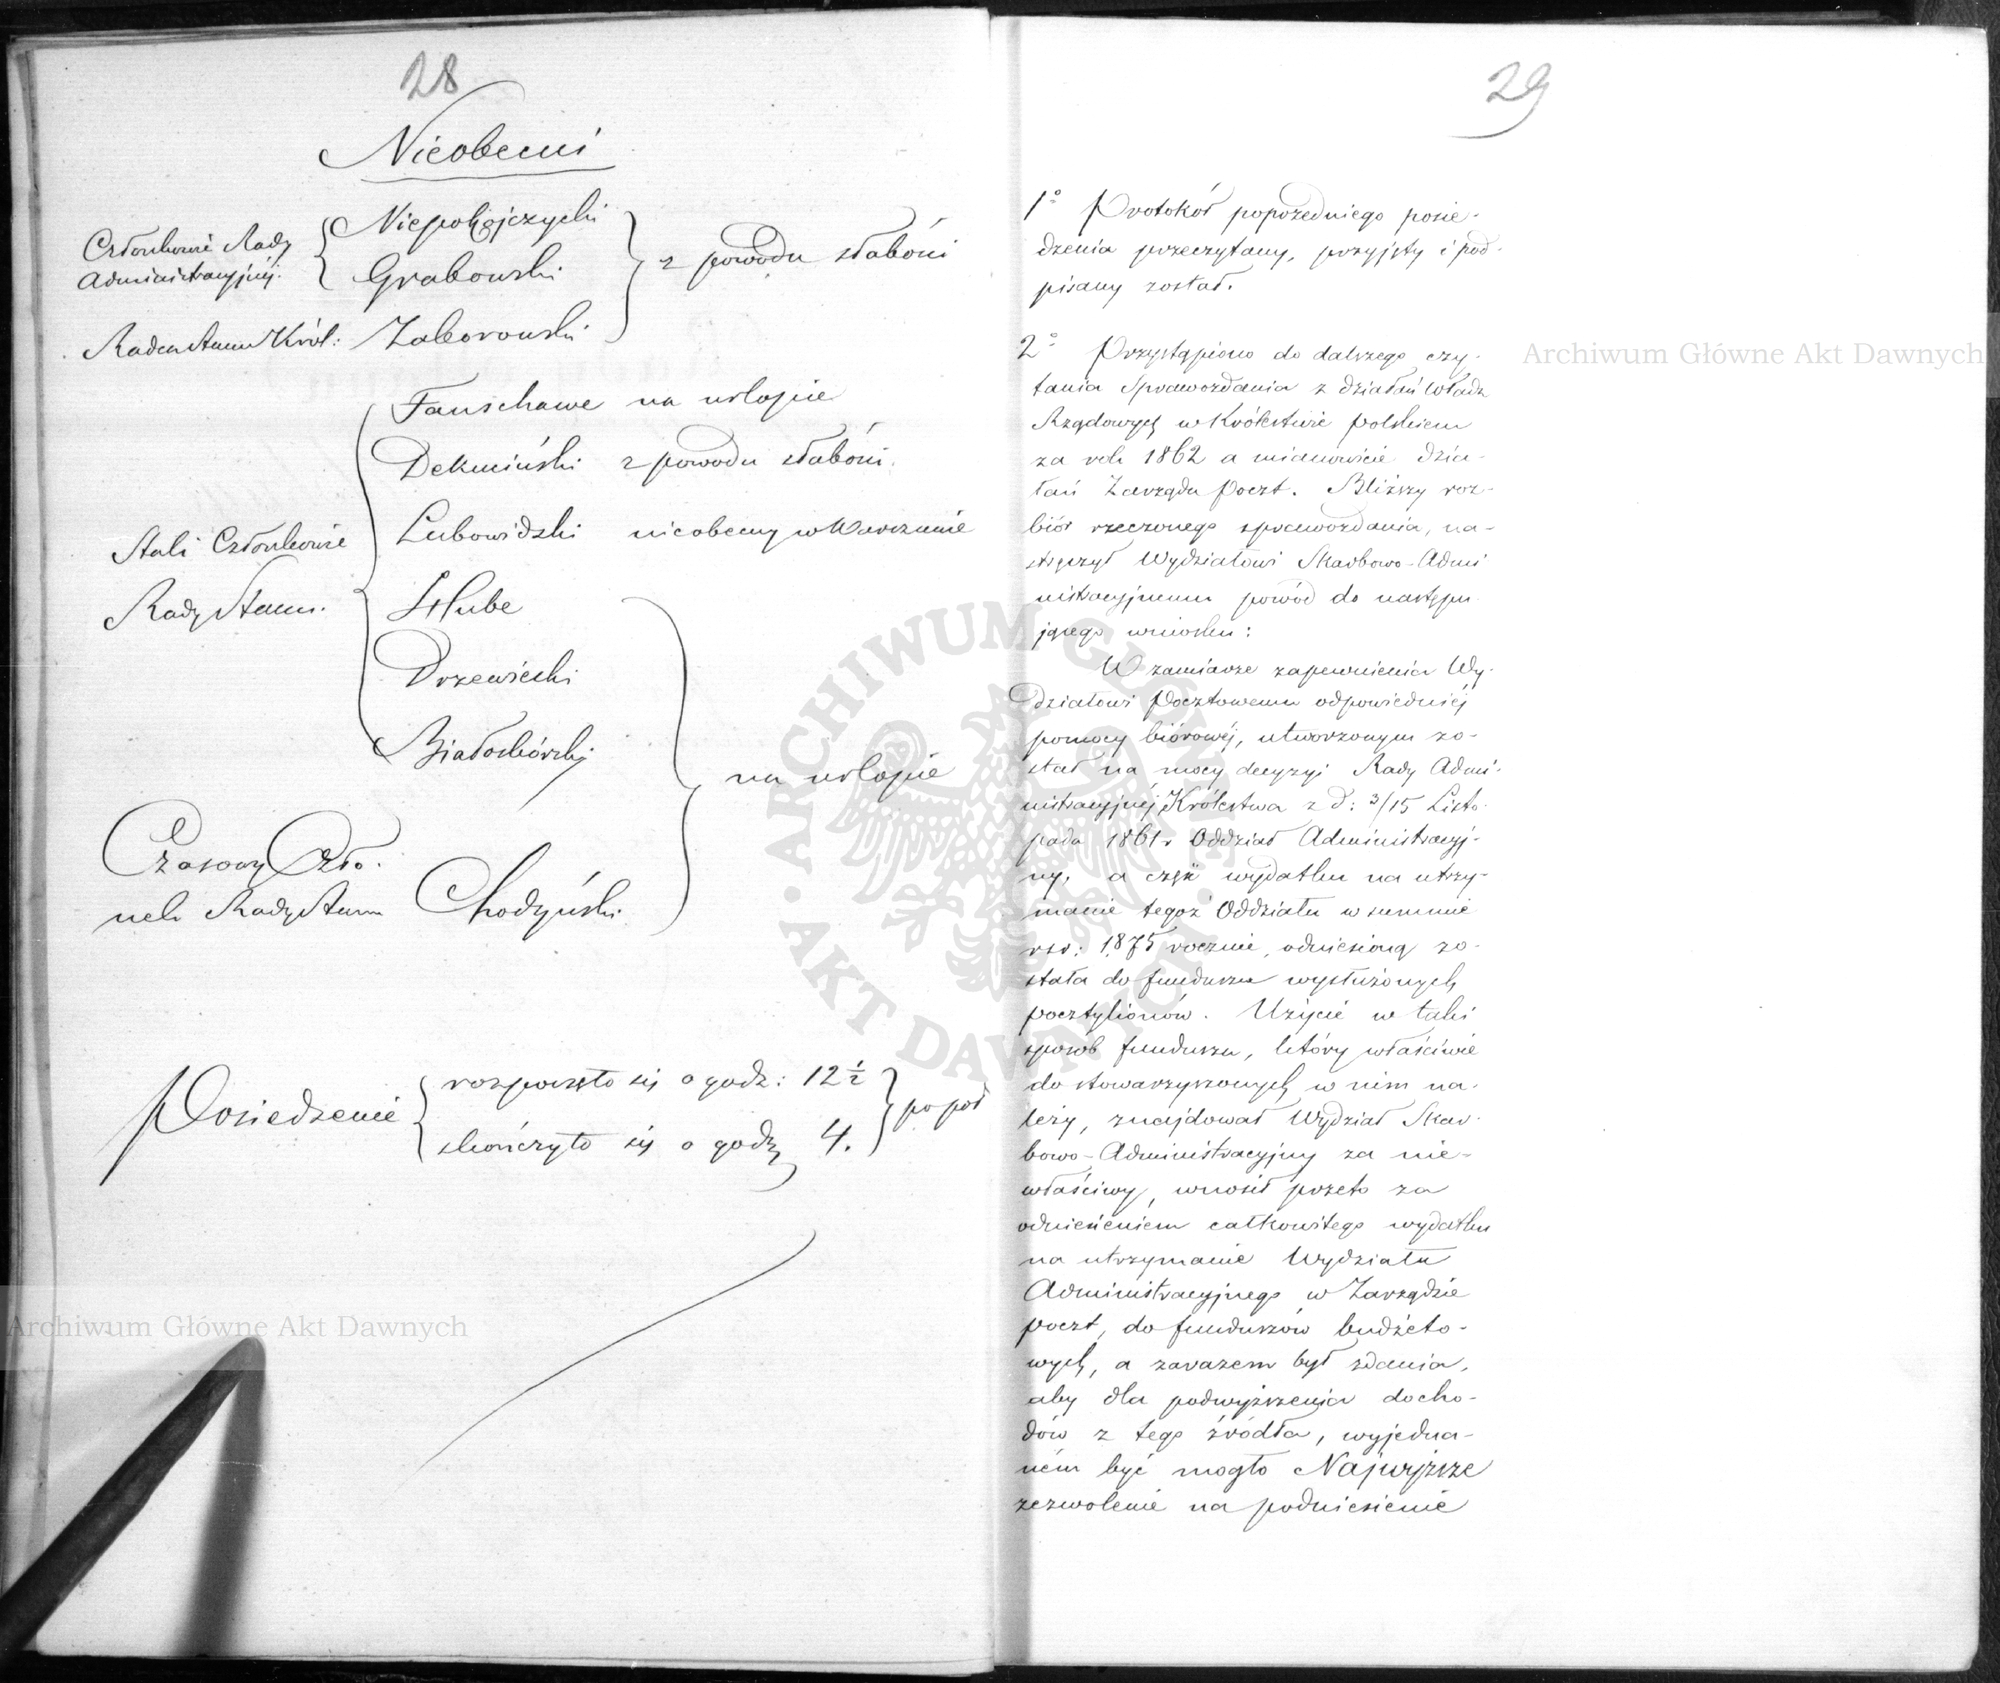 28
Nieobecni
Członkowie Rady
Administracyjnej.
Niepokojczycki
Grabowski
z powodu słabości
Radca Stanu Król: Zaborowski
Fanschawe na urlopie
Dekuciński z powodu słabości.
Lubowidzki nieobecny w Warszawie
Stali Członkowie
Rady Stanu.
Hube
Drzewiecki
Białoskórski
na urlopie
Czasowy Czło-
nek Rady Stanu Chodyński
Posiedzenie
rozpoczęło się o godz: 12 ½
skończyło się o godz 4.
po poł
Archiwum Główne Akt Dawnych
29
1° Protokół poprzedniego posie-
dzenia przeczytany, przyjęty i pod-
pisany został.
2° Przystąpiono do dalszego czy-
tania Sprawozdania z działań Władz
Rządowych w Królestwie polskiem
za rok 1862 a mianowicie dzia-
łań Zarządu Poczt. Bliższy roz-
biór rzeczonego sprawozdania, na-
stręczył Wydziałowi Skarbowo-Admi
nistracyjnemu powód do następu-
jącego wniosku:
W zamiarze zapewnienia Wy-
działowi Pocztowemu odpowiedniéj
pomocy biórowéj, utworzonym zo-
stał na mocy decyzyi Rady Admi-
nistracyjnéj Królestwa z d: 3/15 Listo-
pada 1861 r Oddział Administracyj-
ny, a część wydatku na utrzy-
manie tegoż Oddziału w summie
rsr: 1,875 rocznie, odniesioną zo-
stała do funduszu wysłużonych
pocztylionów. Użycie w taki
sposób funduszu, który właściwie
do stowarzyszonych w nim na-
leży, znajdował Wydział Skar-
bowo-Administracyjny za nie-
właściwy, wnosił przeto za
odniesieniem całkowitego wydatku
na utrzymanie Wydziału
Administracyjnego w Zarządzie
poczt, do funduszów budżeto-
wych, a zarazem był zdania,
aby dla podwyższenia docho-
dów z tego źródła, wyjedna-
ném być mogło Najwyższe
zezwolenie na podniesienie
Archiwum Główne Akt Dawnych
ARCHIWUM GŁÓWNE · AKT DAWNYCH ·